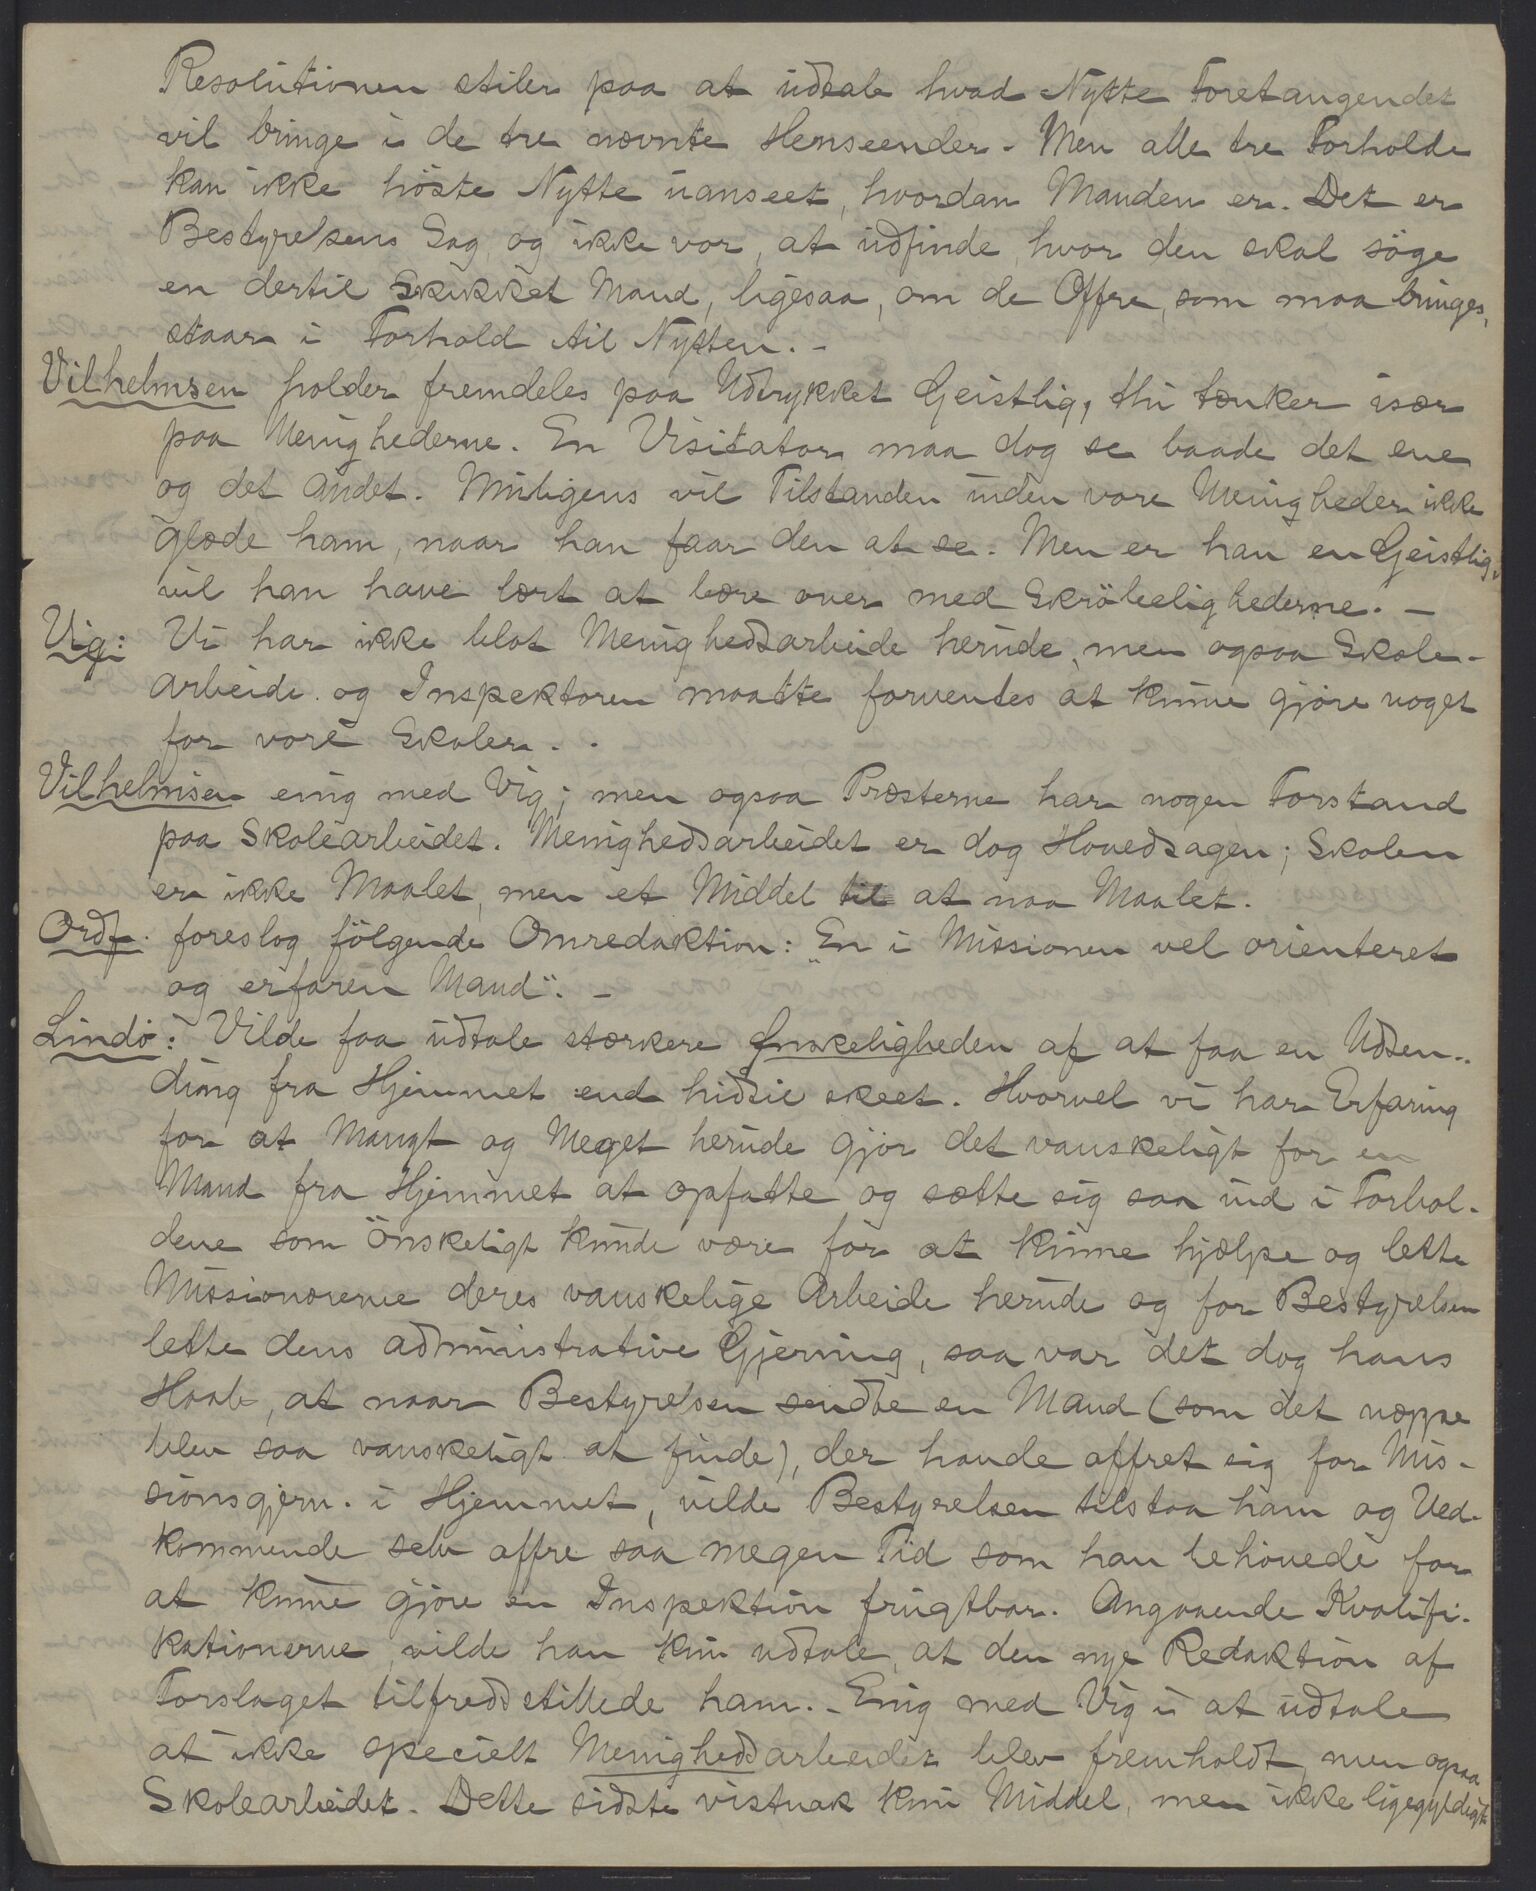 Resolutionen stiler paa at udtale hvad Nytte Foretaugendet
vil bringe i de tre nævnte Henseender. Men alle tre Forholde
kan ikke høste Nytte uanseet, hvordan Manden er. Det er
Bestyrelsens Sag og ikke vor, at udfinde, hvor den skal søge
en dertil skikket Mand, ligesaa, om de Offre, som maa bringes,
staar i Forhold til Nytten. -
Vilhelmsen holder fremdeles paa Udtrykket Geistlig, thi tænker især
paa Menighederne. En Visitator maa dog se baade det ene
og det andet. Muligens vil Tilstanden inden vore Menigheder ikke
glæde ham, naar han faar den at se. Men er han en Geistlig,
vil han have lært at bære over med Skröbelighederne. -
Vig: Vi har ikke blot Menighedsarbeide herude, men ogsaa Skole-
arbeide og Inspektoren maatte forventes at kunne gjöre noget
for vore Skoler. .
Vilhelmsen enig med Vig; men ogsaa Præsterne har nogen Forstand
paa Skolearbeidet. Menighedsarbeidet er dog Hovedsagen; Skolen
er ikke Maalet, men et Middel til at naa Maalet.
Ordf. foreslog fölgende Omredaktion: „En i Missionen vel orienteret
og erfaren Mand“. -
Lindö: Vilde faa udtale stærkere Ønskeligheden af at faa en Udsen-
ding fra Hjemmet end hidtil skeet. Hvorvel vi har Erfaring
for at Mangt og Meget herude gjör det vanskeligt for en
Mand fra Hjemmet at opfatte og sætte sig saa ind i Forhol-
dene som önskeligt kunde være for at kunne hjælpe og lette
Missionærerne deres vanskelige Arbeide herude og for Bestyrelsen
lette dens administrative Gjerning, saa var det dog hans
Haab, at naar Bestyrelsen sendte en Mand (som det næppe
blev saa vanskeligt at finde), der havde offret sig for Mis-
sionsgjern. i Hjemmet, vilde Bestyrelsen tilstaa ham og Ved-
kommende selv offre saa megen Tid som han behövede for
at kunne gjöre en Inspektion frugtbar. Angaaende Kvalifi-
kationerne, vilde han kun udtale, at den nye Redaktion af
Forslaget tilfredsstillede ham. - Enig med Vig i at udtale
at ikke specielt Menighedsarbeidet blev fremholdt, men ogsaa
Skolearbeidet. Dette sidste vistnok kun Middel, men ikke ligegyldigt